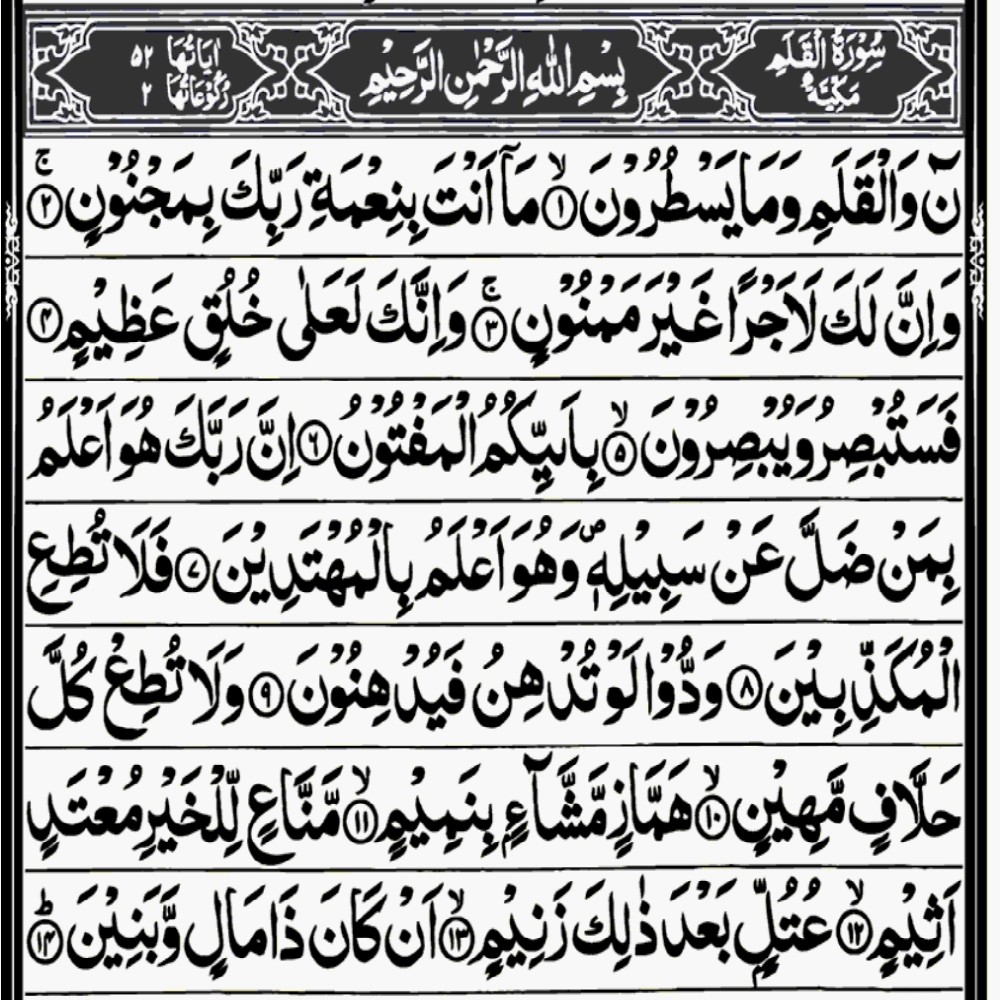 سُوْرَةُ الْقَلَمِ مَكِّيَّةٌ
بِسْمِ اللهِ الرَّحْمٰنِ الرَّحِيْمِ
اٰيَاتُهَا ۵۲
رُكُوْعَاتُهَا ۲
نٓ وَالْقَلَمِ وَمَا يَسْطُرُوْنَ ۙ‏﴿۱﴾ مَاۤ اَنْتَ بِنِعْمَةِ رَبِّكَ بِمَجْنُوْنٍ ۚ‏﴿۲﴾
وَاِنَّ لَكَ لَاَجْرًا غَيْرَ مَمْنُوْنٍ ۚ‏﴿۳﴾ وَاِنَّكَ لَعَلٰى خُلُقٍ عَظِيْمٍ ‏﴿۴﴾
فَسَتُبْصِرُ وَيُبْصِرُوْنَ ۙ‏﴿۵﴾ بِاَيِّكُمُ الْمَفْتُوْنُ ‏﴿۶﴾ اِنَّ رَبَّكَ هُوَ اَعْلَمُ
بِمَنْ ضَلَّ عَنْ سَبِيْلِهٖ ۪ وَهُوَ اَعْلَمُ بِالْمُهْتَدِيْنَ ‏﴿۷﴾ فَلَا تُطِعِ
الْمُكَذِّبِيْنَ ‏﴿۸﴾ وَدُّوْا لَوْ تُدْهِنُ فَيُدْهِنُوْنَ ‏﴿۹﴾ وَلَا تُطِعْ كُلَّ
حَلَّافٍ مَّهِيْنٍ ۙ‏﴿۱۰﴾ هَمَّازٍ مَّشَّآءٍۭ بِنَمِيْمٍ ۙ‏﴿۱۱﴾ مَّنَّاعٍ لِّلْخَيْرِ مُعْتَدٍ
اَثِيْمٍ ۙ‏﴿۱۲﴾ عُتُلٍّۭ بَعْدَ ذٰلِكَ زَنِيْمٍ ۙ‏﴿۱۳﴾ اَنْ كَانَ ذَا مَالٍ وَّبَنِيْنَ ؕ‏﴿۱۴﴾